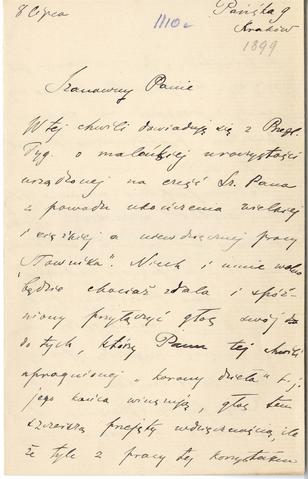 8 Lipca
1110a
Pańska 9
Kraków
1899
Szanowny Panie
W tej chwili dowiaduję się z Przgl.
Tyg. o maleńkiej uroczystości
urządzonej na cześć Sz. Pana
z powodu ukończenia wielkiej
i ciężkiej a niewdzięcznej pracy
"Słownika". Niech i mnie wolno
będzie chociaż zdala i spóź-
niony przyłączyć głos swój
do tych, którzy Panu tej chwili
upragnionej "korony dzieła" t. j.
jego końca winszują, głos tem
szczerszą przejęty wdzięcznością, ile
że tyle z pracy tej korzystałem